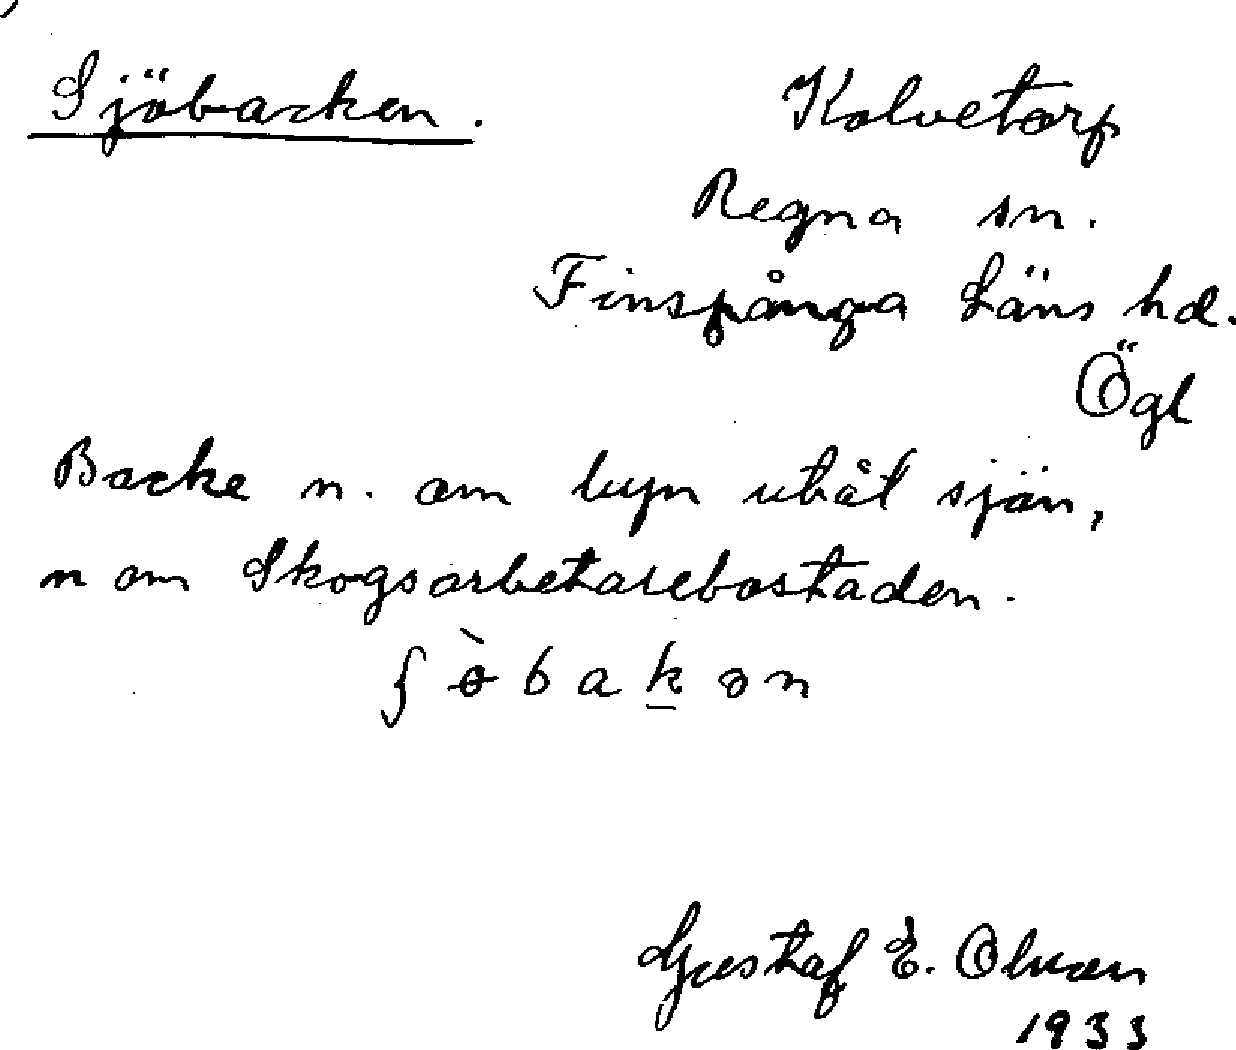 Sjöbacken.
Kolvetorp
Regna sn.
Finspånga Läns hd.
Ögl
Backe n. om byn utåt sjön,
n om Skogsarbetarebostaden.
ʃɵ̀bakən
Gustaf E. Olman
1933